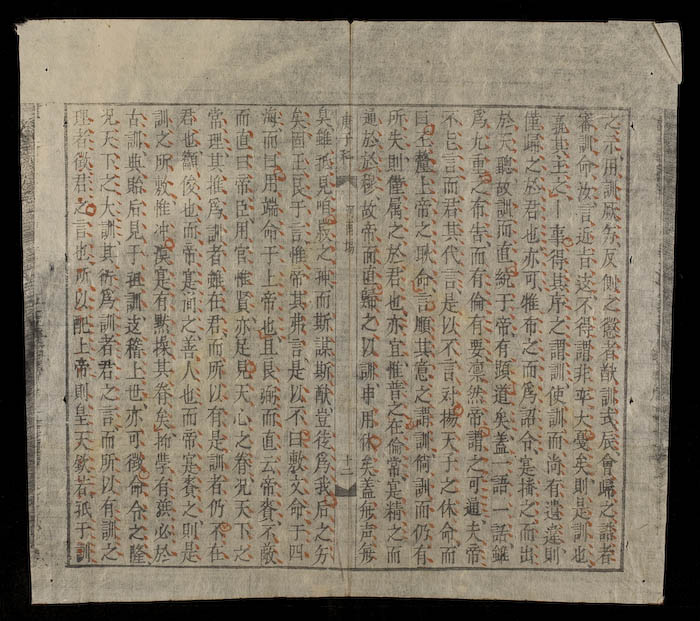 之示用訓厥勿反側之懲者猷訓式辰會歸之者
審訓命汝言近吉不得謂非平大憂矣則是訓也
義其主之一事得其序之謂訓使訓而尚有遺違則
僅歸之於君也亦可惟布之而爲詔命寔播之而出
於天聽故訓而直統于帝有顯道矣蓋一語一話雖
爲尤重之布告而有倫有要凜然帝謂之可通夫帝
不言而君其代言是以不言对揚天子之休命而
曰丕釐上帝之耿命言順其意之謂訓倘訓而仍有
所失則僅属之於君也亦宜惟普之在倫常寔精之而
通於於穆故帝而直歸之以訓申用休矣蓋無声無
庚子科
場
十二
臭雖孤見之神而斯謀斯猷豈後爲我后之分
矣固王艮于言惟帝其弗言是以不曰敷文命于四
海而曰用端命于上帝也且良弼而直云帝賚不敢
而直曰帝臣用官惟賢亦足見天心之眷况天下之
常理其推爲訓者雖在君而所以有是訓者仍不在
君也籲俊也而帝寔簡之善人也而帝寔賚之則是
訓之所敷惟冲漠寔有默操其眷矣學有獲必於
古訓典后見于祖訓稽上世亦可徵命令之隆
况天下之大訓其所爲訓者君之言而所以有訓之
理者微君之言也所以配上帝則皇天欽若孤于訓